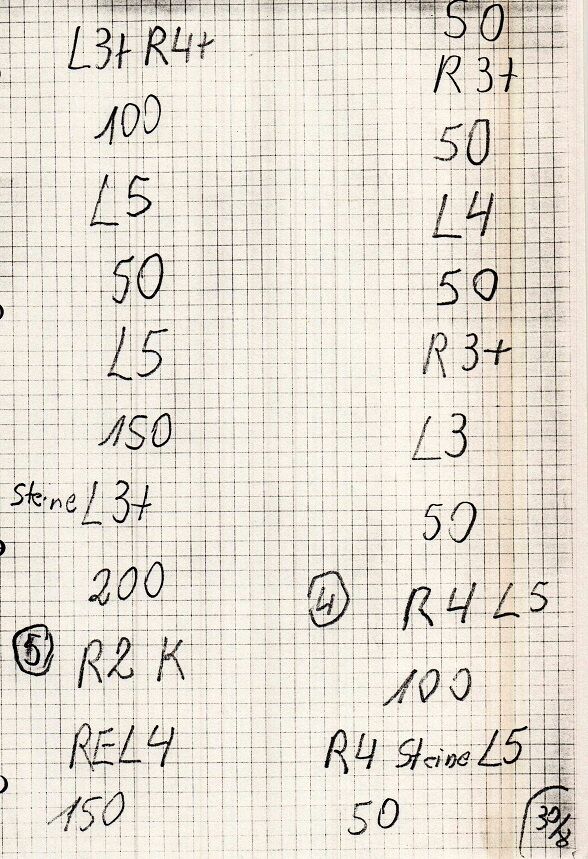 L3+ R4+
100
L5
50
L5
150
Steine L3+
200
5 R2 K
REL4
150
50
R3+
50
L4
50
R3+
L3
50
4 R4 L5
100
R4 Steine L5
50
30/8